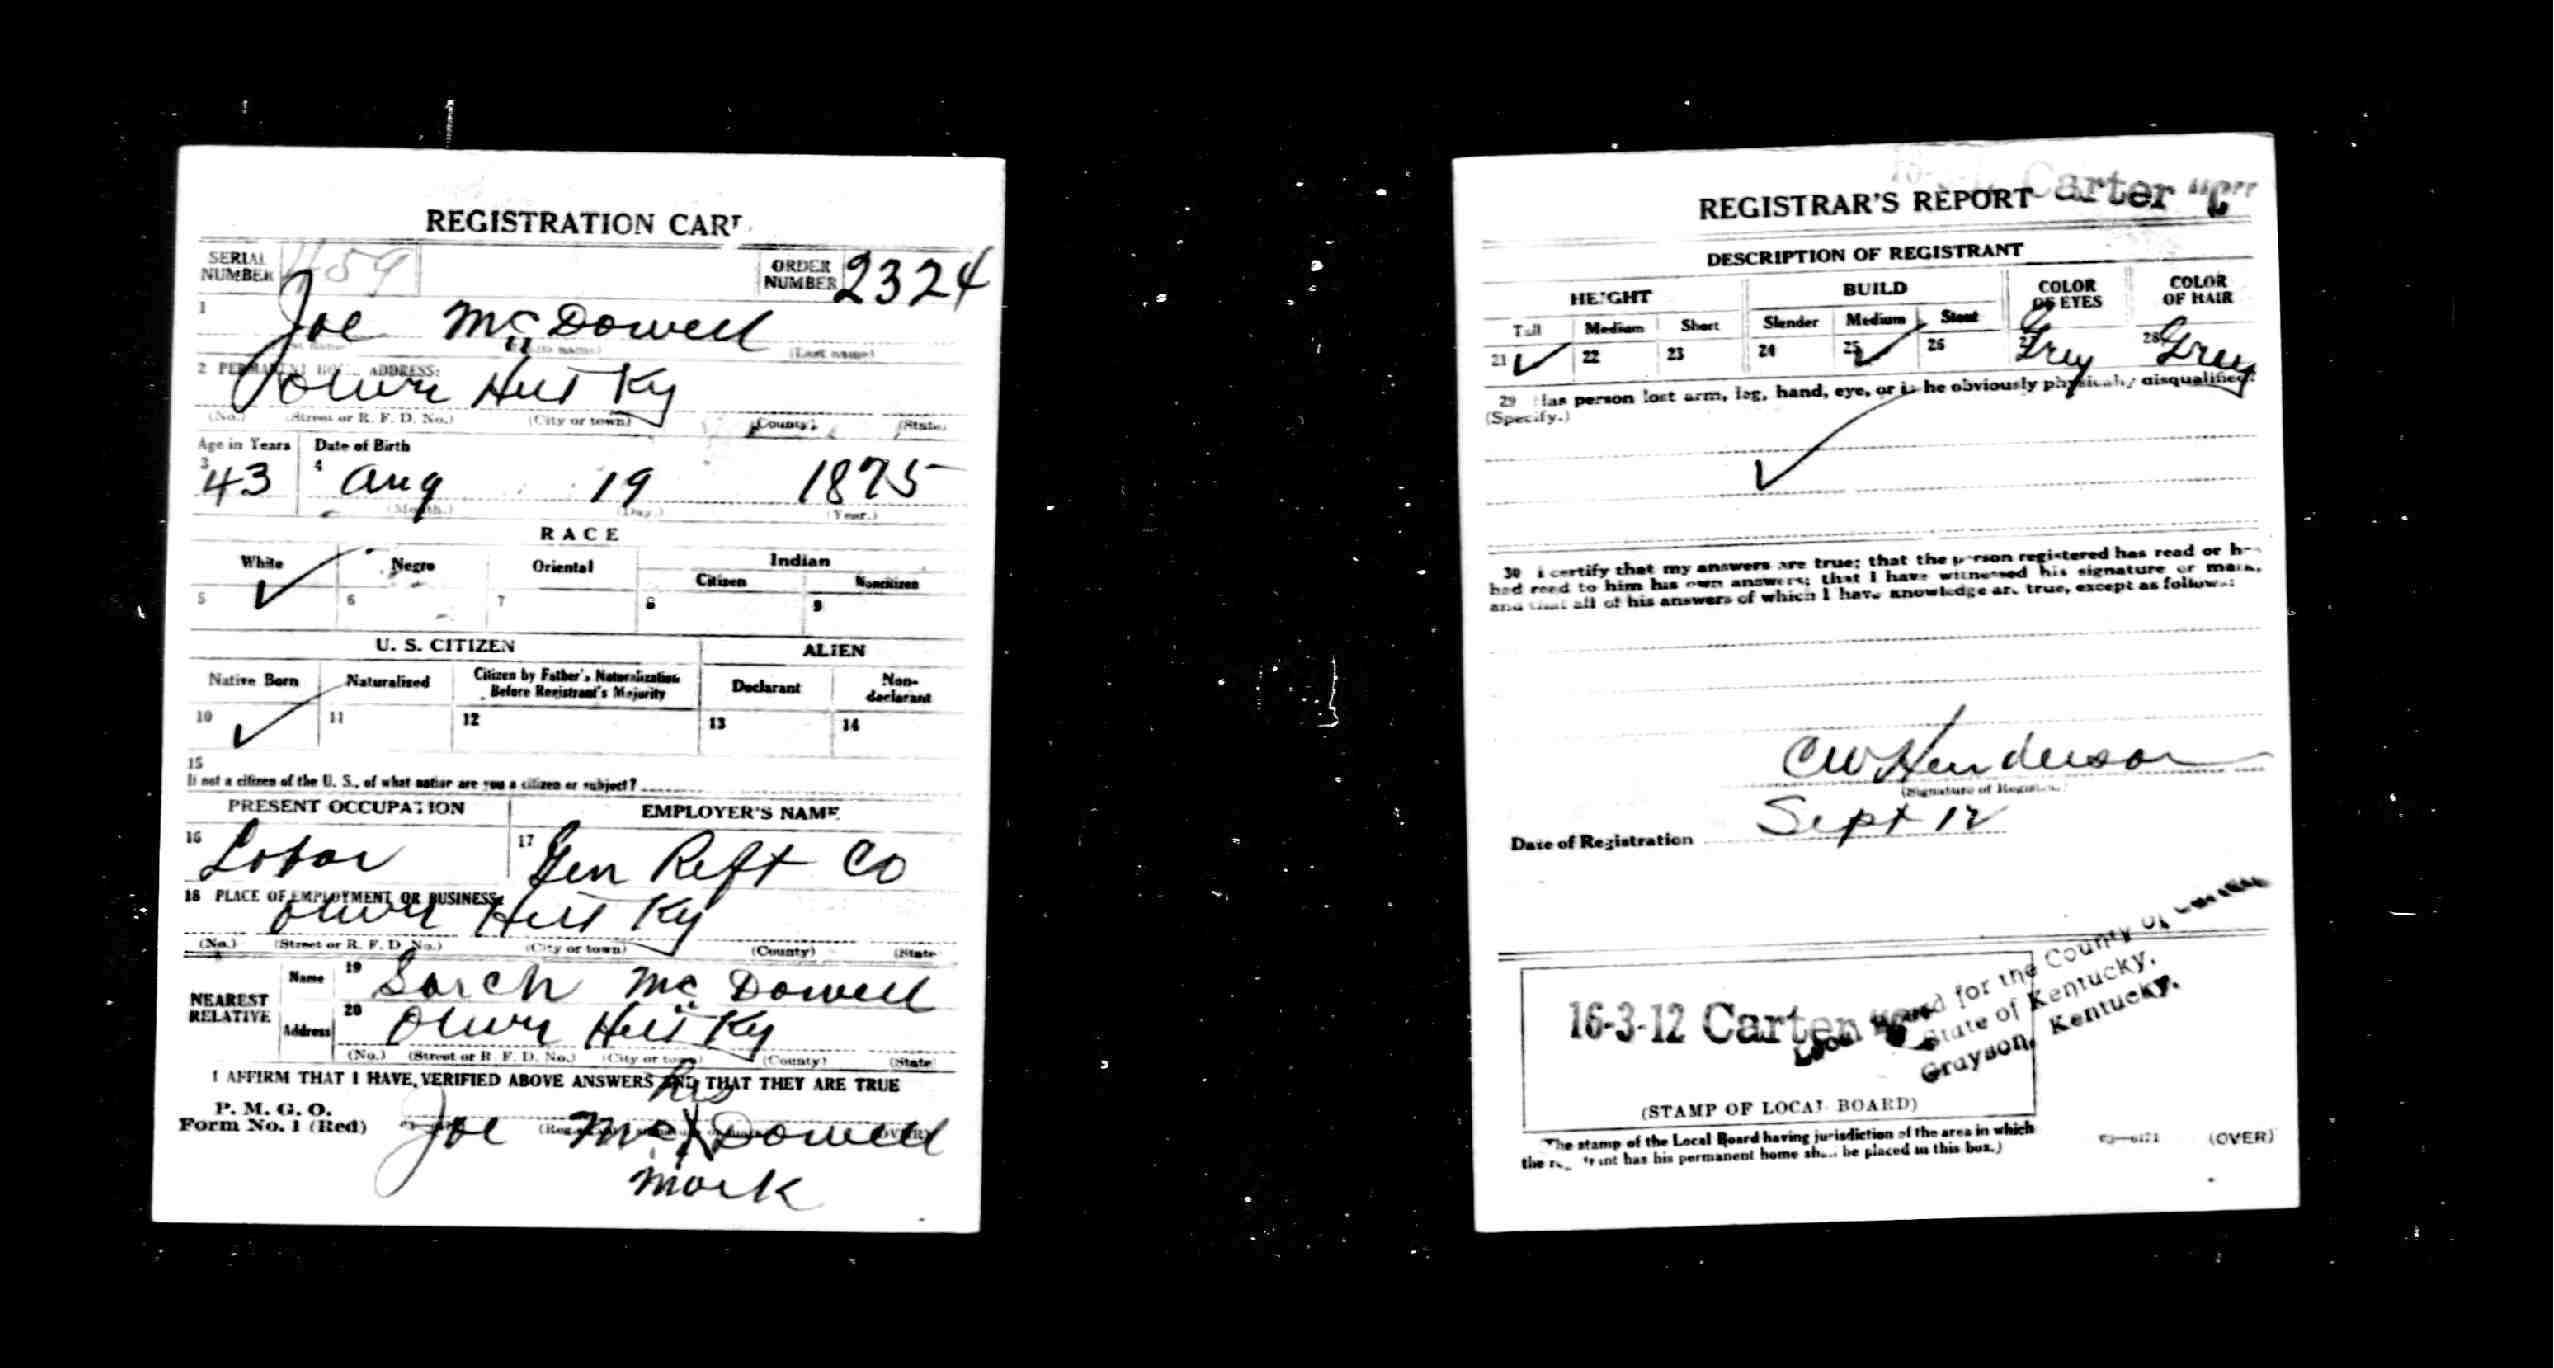 REGISTRATION CARD
SERIAL NUMBER 459 ORDER NUMBER 2324
1 Joe McDowell
(Last name)
2 PERMANENT HOME ADDRESS:
Oliver Hill Ky
(No.) (Street or R. F. D. No.) (City or town) (County) (State)
Age in Years Date of Birth
3 43 4 Aug 19 1875
(Month.) (Day.) (Year.)
RACE
White Negro Oriental Indian
Citizen Noncitizen
5 ✓ 6 7 8 9
U. S. CITIZEN ALIEN
Native Born Naturalized Citizen by Father's Naturalization Before Registrant's Majority Declarant Non-declarant
10 ✓ 11 12 13 14
15
If not a citizen of the U. S., of what nation are you a citizen or subject?
PRESENT OCCUPATION EMPLOYER'S NAME
16 Labor 17 Gen Reft Co
18 PLACE OF EMPLOYMENT OR BUSINESS:
Oliver Hill Ky
(No.) (Street or R. F. D. No.) (City or town) (County) (State)
NEAREST RELATIVE Name 19 Sarah McDowell
Address 20 Oliver Hill Ky
(No.) (Street or R. F. D. No.) (City or town) (County) (State)
I AFFIRM THAT I HAVE VERIFIED ABOVE ANSWERS AND THAT THEY ARE TRUE
P. M. G. O.
Form No. 1 (Red)
his
Joe Mc X Dowell
mark
(OVER)
Carter "C"
REGISTRAR'S REPORT
DESCRIPTION OF REGISTRANT
HEIGHT BUILD COLOR OF EYES COLOR OF HAIR
Tall Medium Short Slender Medium Stout
21 ✓ 22 23 24 25 ✓ 26 27 Grey 28 Grey
29 Has person lost arm, leg, hand, eye, or is he obviously physically disqualified?
(Specify.)
✓
30 I certify that my answers are true; that the person registered has read or has
had read to him his own answers; that I have witnessed his signature or mark,
and that all of his answers of which I have knowledge are true, except as follows:
C W Henderson
(Signature of Registrar)
Date of Registration Sept 12
16-3-12 Carter "C"
Local Board for the County of Carter
State of Kentucky,
Grayson, Kentucky.
(STAMP OF LOCAL BOARD)
The stamp of the Local Board having jurisdiction of the area in which
the registrant has his permanent home shall be placed in this box.)
03—6171 (OVER)